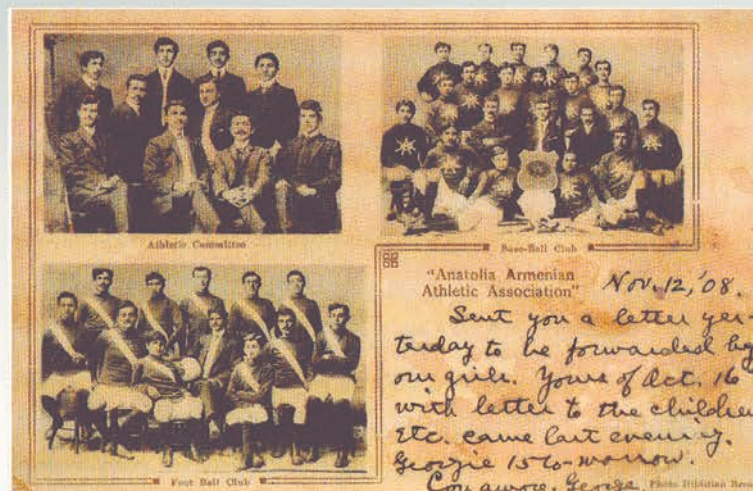 Athletic Committee
Base-Ball Club
"Anatolia Armenian
Athletic Association"
Nov. 12, '08.
Sent you a letter yes-
terday to be forwarded by
our girls. Yours of Oct. 16
with letter to the children
etc. came last evening.
Georgie 15 to-morrow.
George
Foot Ball Club
Photo Dildilian Bros